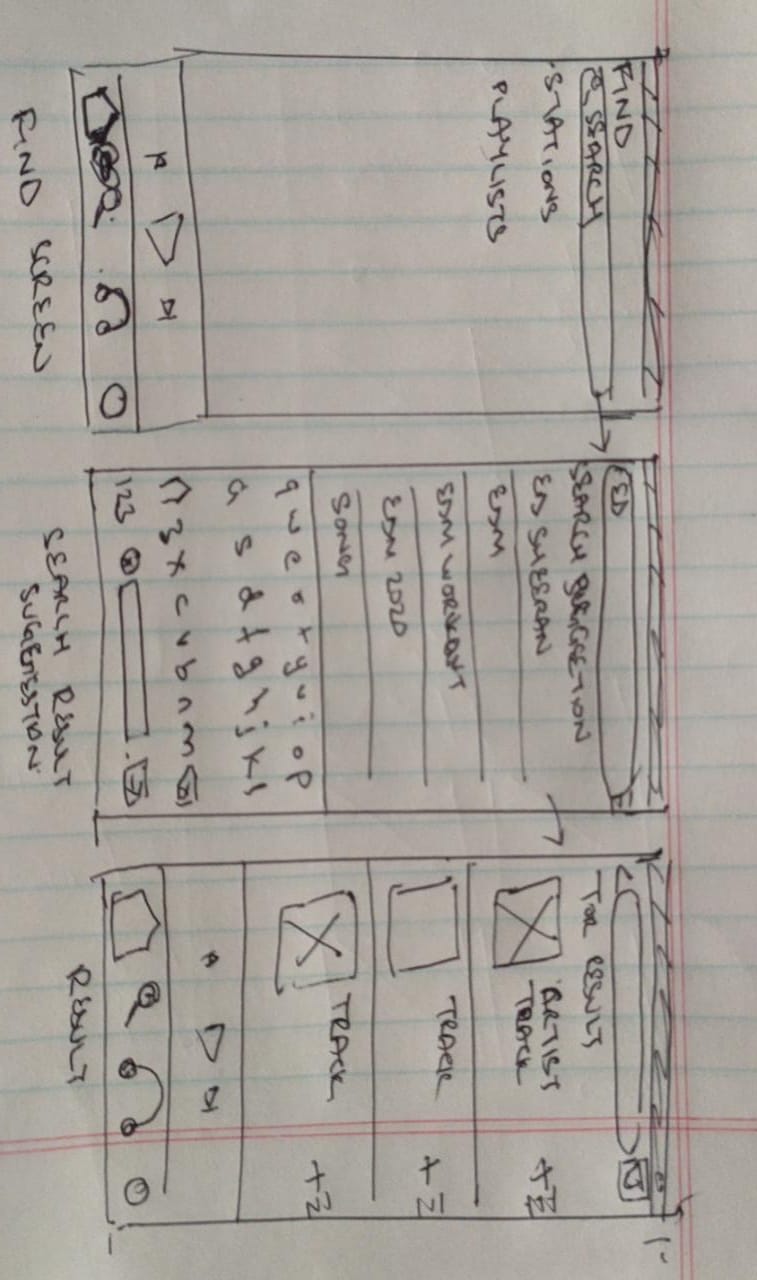 FIND
SEARCH
STATIONS
PLAYLISTS
FIND SCREEN
ED
ED SHEERAN
EDM
EDM WORKOUT
EDM 2020
SONGS
q w e r t y u i o p
a s d f g h j k l
z x c v b n m
123
SEARCH RESULT
SUGGESTION
TOP RESULT
ARTIST
TRACK
TRACK
TRACK
RESULT